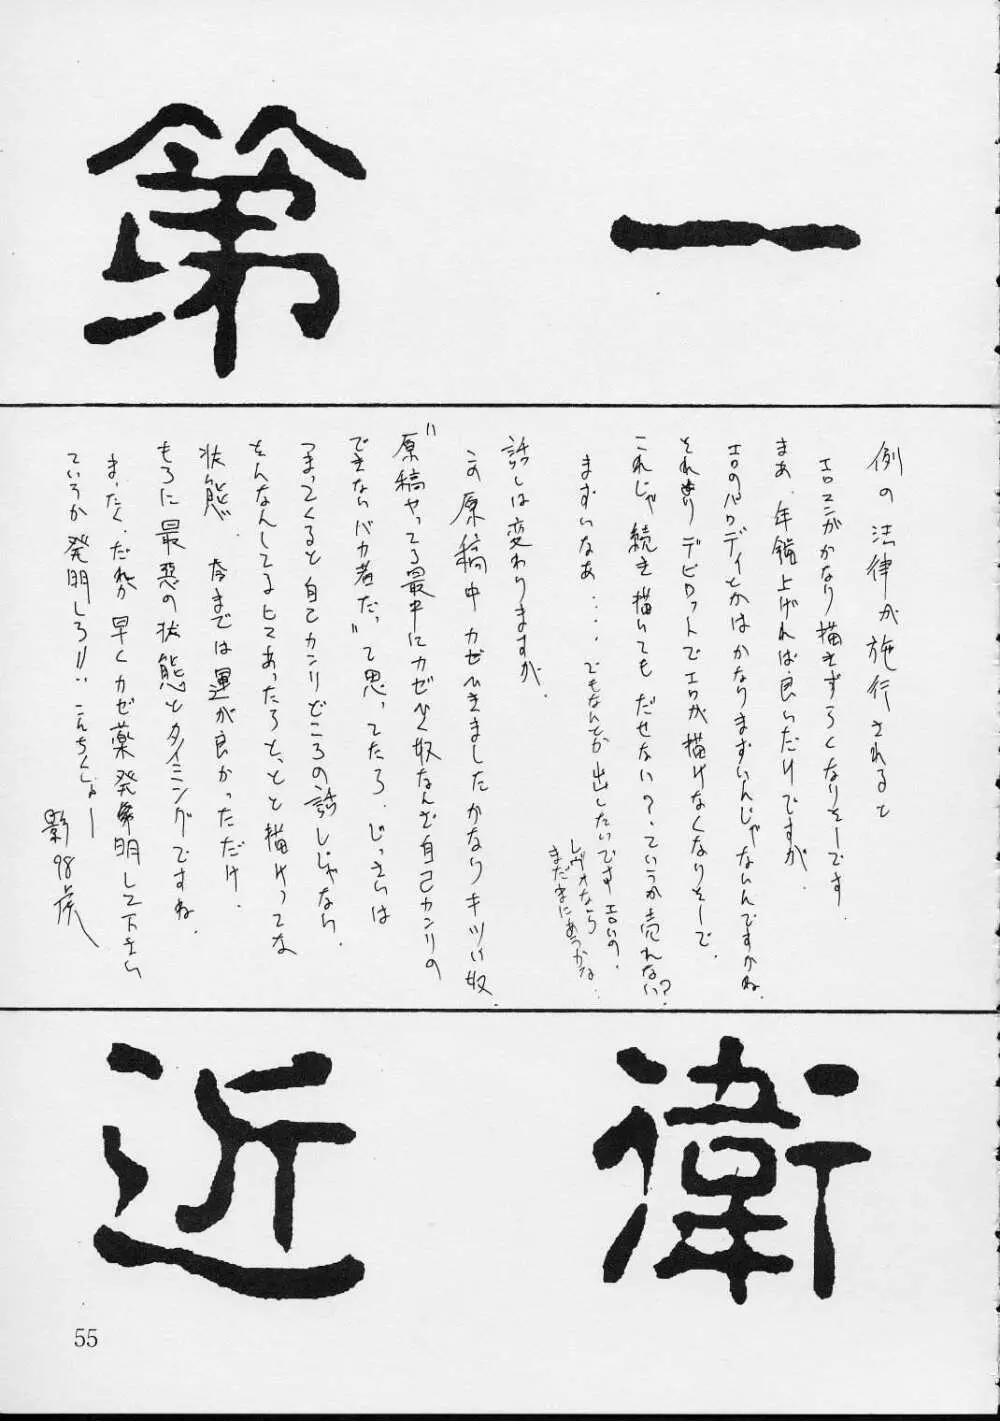 第一
例の法律が施行されると
エロマンがかなり描きずらくなりそーです
まあ、年齢上げれば良いだけですが、
エロのパロディとかはかなりまずいんじゃないんですかね、
それよりデビロットでエロが描けなくなりそーで、
これじゃ続き描いてもだせない?ていうか売れない?
まずいなあ・・・・でもなんとか出したいです エロいの、
レヴォなら
まだまにあうかな、
話しは変わりますが、
この原稿中カゼひきましたかなりキツい奴、
"原稿やってる最中にカゼひく奴なんざ自己カンリの
できないバカ者だっ"て思ってたら、じっさいは
つまってくると自己カンリどころの話しじゃない、
そんなんしてるヒマあったらとっとと描けってな
状態、今までは運が良かっただけ、
もろに最悪の状態とタイミングですね、
まったく、だれか早くカゼ薬発明して下さい
ていうか発明しろ!! こんちくしょー
影98
近衛
55